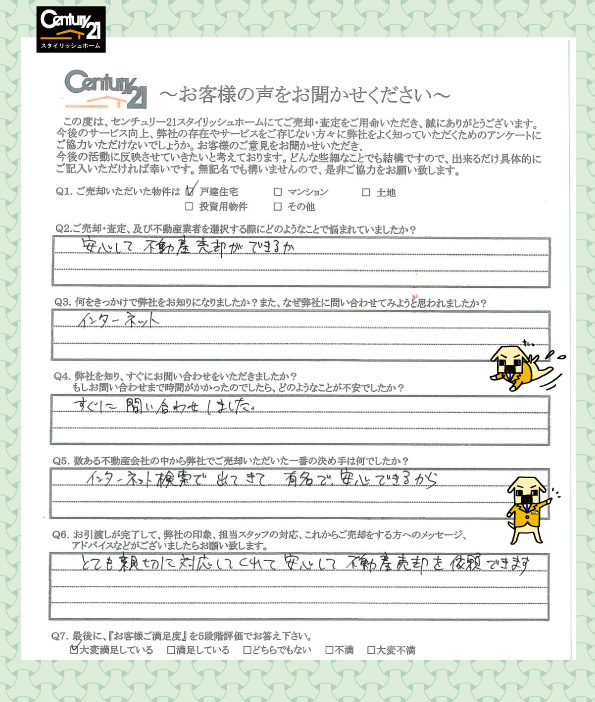 Century 21
スタイリッシュホーム
Century 21 ～お客様の声をお聞かせください～
この度は、センチュリー21スタイリッシュホームにてご売却・査定をご用命いただき、誠にありがとうございます。
今後のサービス向上、弊社の存在やサービスをご存じない方々に弊社をよく知っていただくためのアンケートに
ご協力いただけないでしょうか。お客様のご意見をお聞かせいただき、
今後の活動に反映させていきたいと考えております。どんな些細なことでも結構ですので、出来るだけ具体的に
ご記入いただければ幸いです。無記名でも構いませんので、是非ご協力をお願い致します。
Q1. ご売却いただいた物件は ☑ 戸建住宅 □ マンション □ 土地
□ 投資用物件 □ その他
Q2.ご売却・査定、及び不動産業者を選択する際にどのようなことで悩まれていましたか？
安心して不動産売却ができるか
Q3. 何をきっかけで弊社をお知りになりましたか？また、なぜ弊社に問い合わせてみようと思われましたか？
インターネット
Q4. 弊社を知り、すぐにお問い合わせをいただきましたか？
もしお問い合わせまで時間がかかったのでしたら、どのようなことが不安でしたか？
すぐに問い合わせしました。
Q5. 数ある不動産会社の中から弊社でご売却いただいた一番の決め手は何でしたか？
インターネット検索で出てきて有名で安心できるから
Q6. お引渡しが完了して、弊社の印象、担当スタッフの対応、これからご売却をする方へのメッセージ、
アドバイスなどがございましたらお願い致します。
とても親切に対応してくれて安心して不動産売却を依頼できます
Q7. 最後に、『お客様ご満足度』を5段階評価でお答え下さい。
☑大変満足している □満足している □どちらでもない □不満 □大変不満